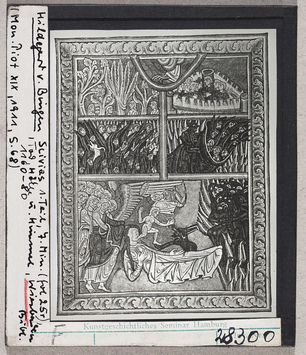 Hildegard v. Bingen Scivias, 1 Teil, 7. Min. (fol. 25r)
Tod, Hölle u. Himmel, Wiesbaden
1160-80
(Mon. Piot XIX 1911, S. 68)
Kunstgeschichtliches Seminar Hamburg
28300